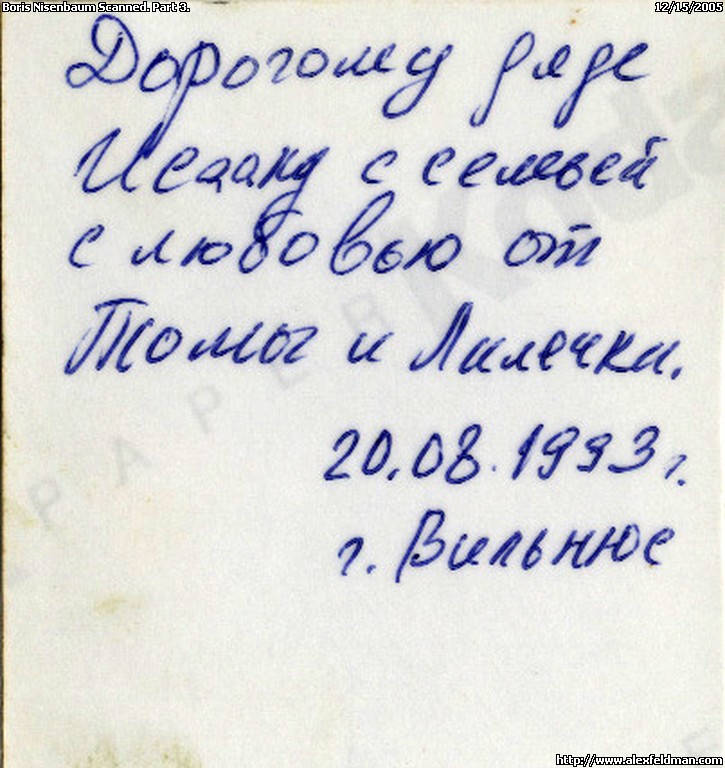 Boris Nisenbaum Scanned. Part 3. 12/15/2005
Дорогому дяде
Исааку с семьей
с любовью от
Томы и Лилечки.
20.08.1993 г.
г. Вильнюс
PAPER
http://www.alexfeldman.com